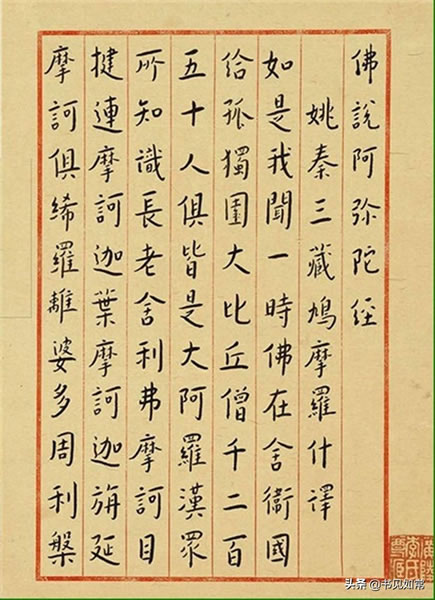 佛說阿弥陀经
姚秦三藏鳩摩羅什譯
如是我聞一時佛在舍衛國
给孤獨園大比丘僧千二百
五十人俱皆是大阿羅漢眾
所知識長老舍利弗摩訶目
揵連摩訶迦葉摩訶迦旃延
摩訶俱絺羅離婆多周利槃
头条 @书见如常